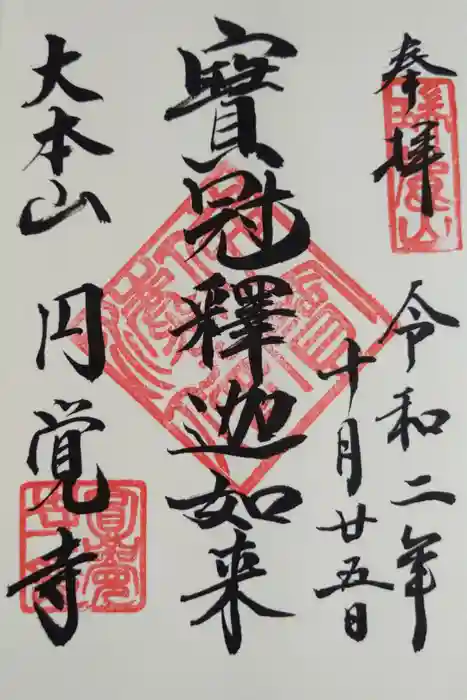 奉拝
令和二年
十月廿五日
寳冠釋迦如来
大本山 円覚寺